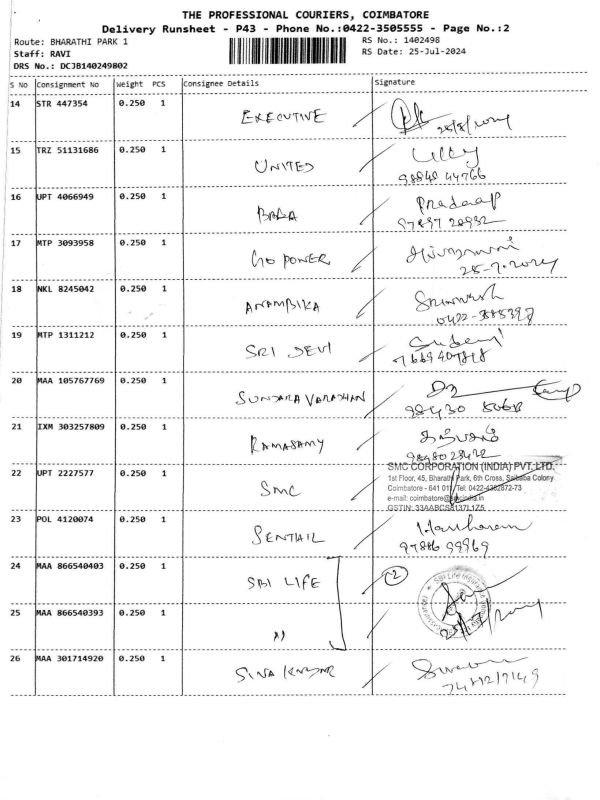 THE PROFESSIONAL COURIERS, COIMBATORE
Delivery Runsheet - P43 - Phone No.:0422-3505555 - Page No.:2
Route: BHARATHI PARK 1
RS No.: 1402498
Staff: RAVI
RS Date: 25-Jul-2024
DRS No.: DCJB140249802
S No Consignment No Weight PCS Consignee Details Signature
14 STR 447354 0.250 1 EXECUTIVE
15 TRZ 51131686 0.250 1 UNITED
98840 44766
16 UPT 4066949 0.250 1 BABA Pradeep
97897 20932
17 MTP 3093958 0.250 1 GO POWER
25-7-2024
18 NKL 8245042 0.250 1 ANAMBIKA
19 MTP 1311212 0.250 1 SRI DEVI
20 MAA 105767769 0.250 1 SUNDARA VARADHAN
21 IXM 303257809 0.250 1 RAMASAMY
22 UPT 2227577 0.250 1 SMC
SMC CORPORATION (INDIA) PVT. LTD.
1st Floor, 45, Bharathi Park, 6th Cross, Saibaba Colony
Coimbatore - 641 011, Tel: 0422-4382872-73
e-mail: coimbatore@smcindia.in
23 POL 4120074 0.250 1 SENTHIL Hariharan
24 MAA 866540403 0.250 1 SBI LIFE 2
SBI Life Insurance
25 MAA 866540393 0.250 1 "
26 MAA 301714920 0.250 1 SIVA KUMAR